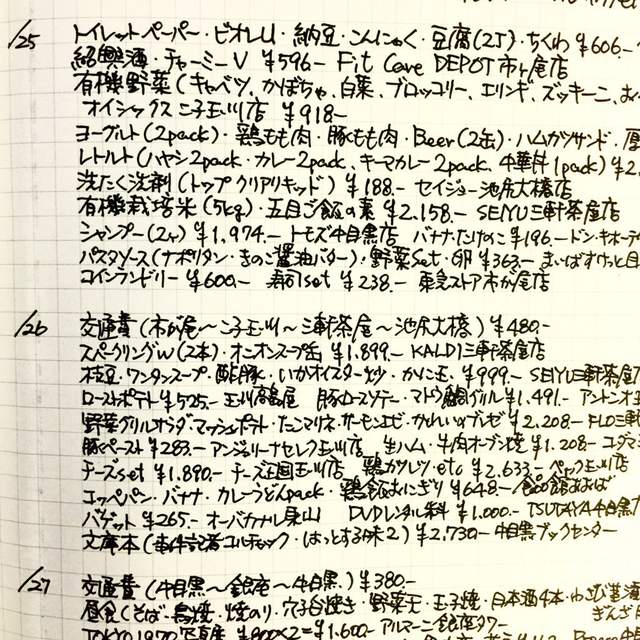 /25 トイレットペーパー・ビオレU・納豆・こんにゃく・豆腐(2コ)・ちくわ ¥606.-
紹興酒・チャーミーV ¥596- Fit Care DEPOT市ヶ尾店
有機野菜(キャベツ、かぼちゃ、白菜、ブロッコリー、エリンギ、ズッキーニ、
オイシックス二子玉川店 ¥918-
ヨーグルト(2pack)・鶏もも肉・豚もも肉・Beer(2缶)・ハムカツサンド・
レトルト(ハヤシ2pack・カレー2pack、キーマカレー2pack、中華丼1pack) ¥2,
洗たく洗剤(トップクリアリキッド) ¥188.- セイジョー池尻大橋店
有機栽培米(5kg)・五目ご飯の素 ¥2,158.- SEIYU三軒茶屋店
シャンプー(2ヶ) ¥1,974.- トモズ中目黒店 バナナ・たけのこ ¥196.- ドン・キホーテ
パスタソース(ナポリタン・きのこ醤油バター)・野菜Set・卵 ¥363.- まいばすけっと
コインランドリー ¥600.- 寿司set ¥238.- 東急ストア市が尾店
/26 交通費(市が尾〜二子玉川〜三軒茶屋〜池尻大橋) ¥480.-
スパークリングW(2本)・オニオンスープ缶 ¥1,899.- KALDI三軒茶屋店
枝豆・ワンタンスープ・酢豚・いかオイスター炒・かに玉 ¥999.- SEIYU三軒茶屋
ローストポテト ¥525.- 玉川高島屋 豚ロースソテー・マトウ鯛グリル ¥1,491.- アントンオ
野菜グリルサラダ・マッシュポテト・たこマリネ・サーモンエビ・かれいハーブゼ ¥2,208.- FLO三軒
豚ペースト ¥283.- アンジェリーナセレクト玉川店 生ハム・牛肉オーブン焼 ¥1,208.-
チーズset ¥1,890.- チーズ王国玉川店 鶏ガツレツ・etc ¥2,633.- ペック玉川店
コッペパン・バナナ・カレーうどんpack・鶏飯おにぎり ¥648.- 食品館あおば
バゲット ¥265.- オーバカナル東山 DVDレンタル料 ¥1,000.- TSUTAYA中目黒
文庫本(事件記者コルチャック・はっとする味2) ¥2,730.- 中目黒ブックセンター
/27 交通費(中目黒〜銀座〜中目黒) ¥380-
昼食(そば・鳥焼・焼のり・穴子白焼き・野菜天・玉子焼・日本酒4本・わさび
TOKYO 1970 写真展 ¥800×2=¥1,600.- アルマーニ銀座タワー